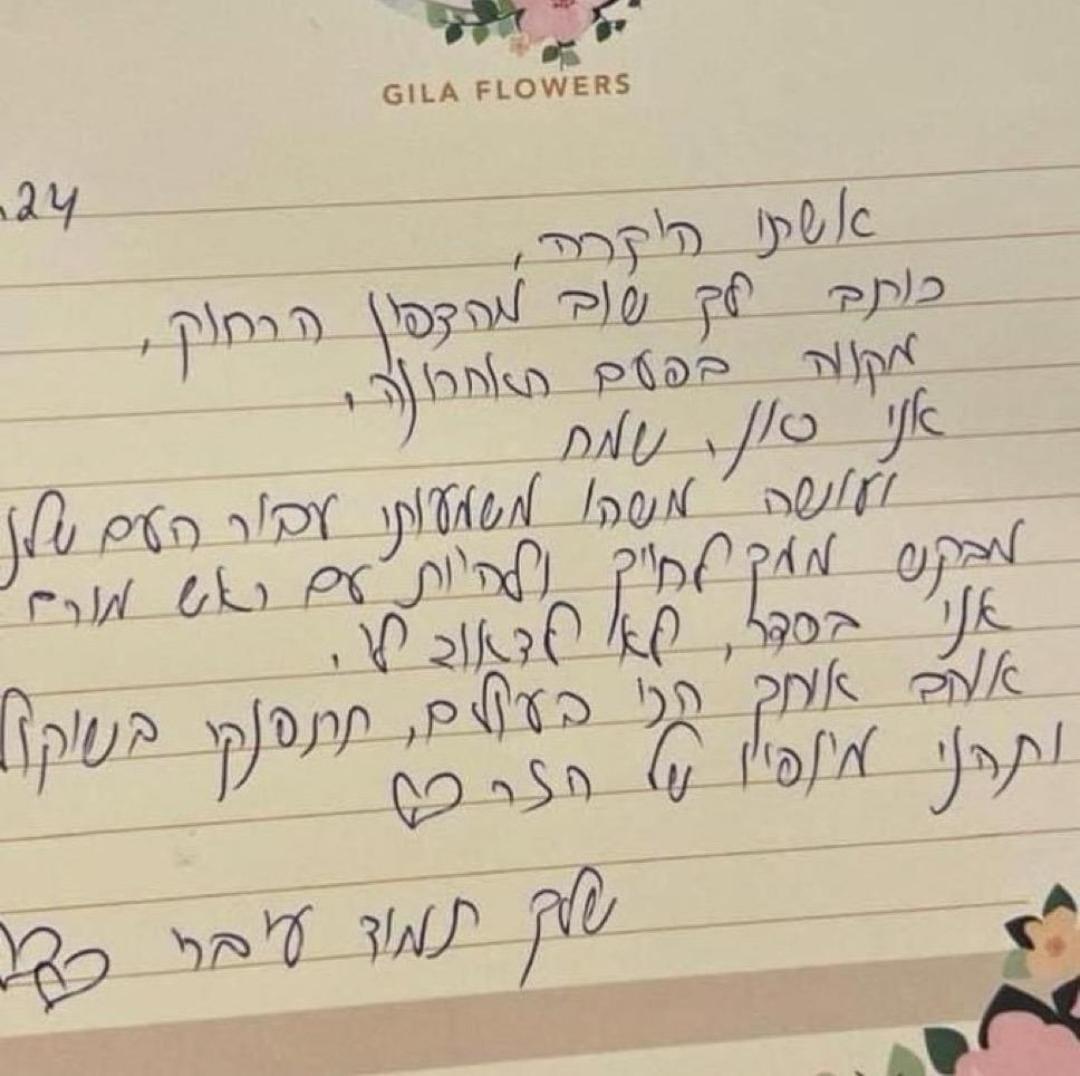 GILA FLOWERS
.24
אשתי היקרה,
כותב לך שוב מהצפון הרחוק,
מקווה בפעם האחרונה,
אני כאן, שמח
ועושה משהו משמעותי עבור העם שלנ
מבקש ממך לחייך ולהיות עם ראש מורם
אני בסדר, לא לדאוג לי.
אוהב אותך הכי בעולם, תתפנקי בשוקול
ותהני מינפיו של הזר
שלך תמיד עיברי